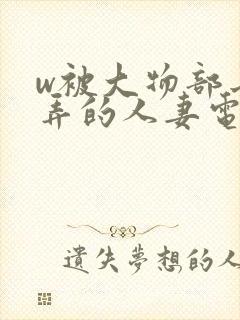 w被大物部
弄的人妻電
遺失夢想的人